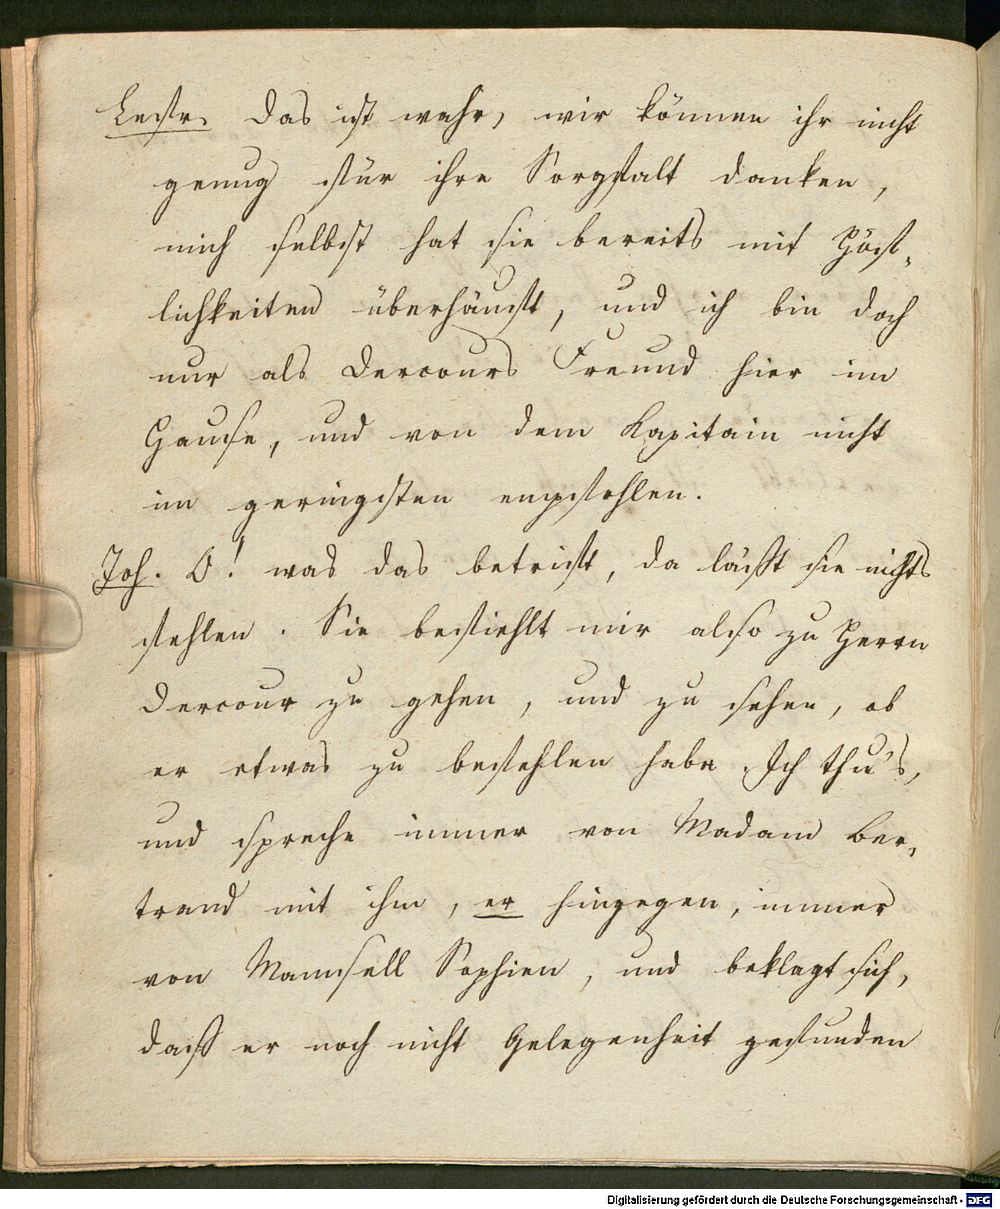 Lestr. Das ist wahr, wir können ihr nicht
genug für ihre Sorgfalt danken,
mich selbst hat sie bereits mit Höf-
lichkeiten überhäuft, und ich bin doch
nur als Dercours Freund hier im
Hause, und von dem Kapitain nicht
im geringsten empfohlen.
Joh. O! was das betrifft, da läßt sie nichts
fehlen. Sie befiehlt mir also zu Herrn
Dercour zu gehen, und zu sehen, ob
er etwas zu befehlen habe. Ich thu's,
und spreche immer von Madam Ber-
trand mit ihm, er hingegen, immer
von Mamsell Sophien, und beklagt sich,
daß er noch nicht Gelegenheit gefunden
Digitalisierung gefördert durch die Deutsche Forschungsgemeinschaft - DFG